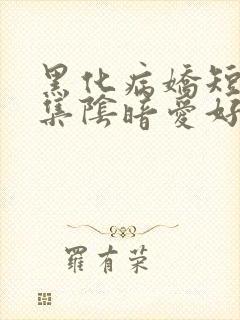 黑化病嬌短
集陰暗愛好
羅有荣